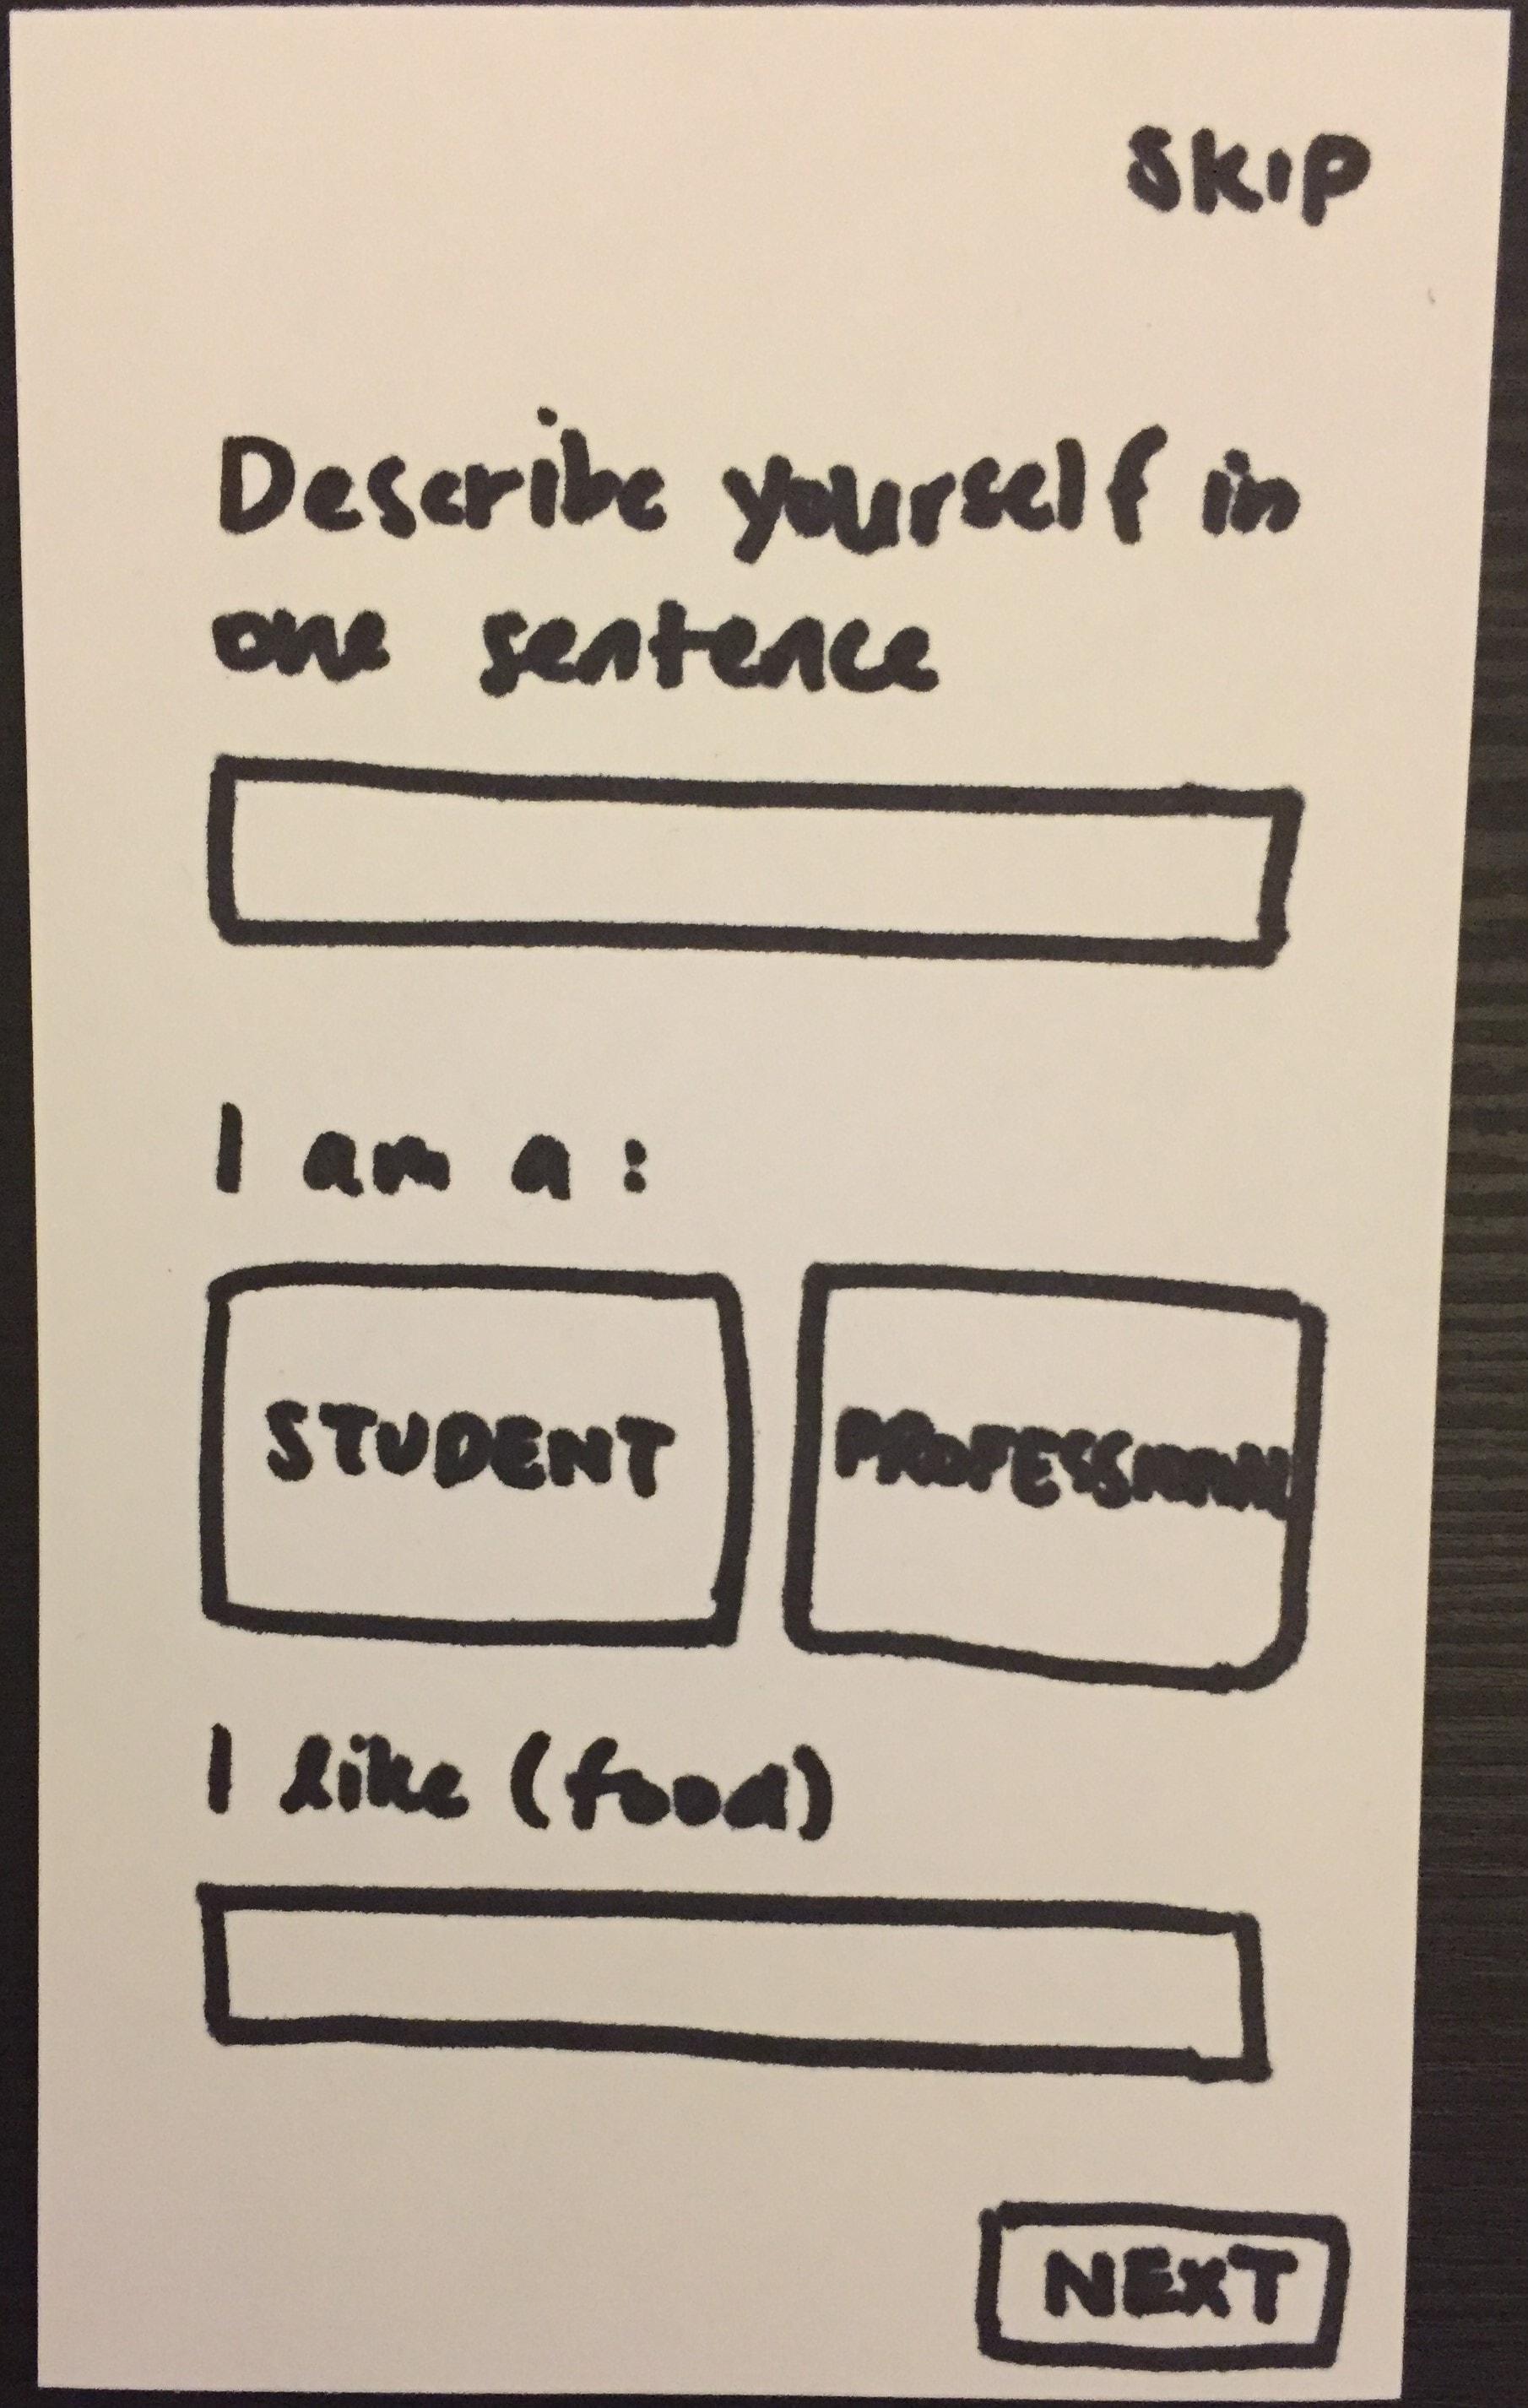 SKIP
Describe yourself in
one sentence
I am a :
STUDENT PROFESSIONAL
I like (food)
NEXT